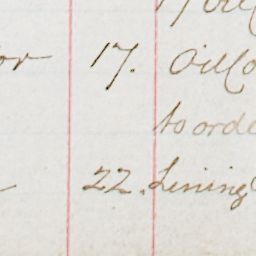 or 17. Oil Co
to orde
22. Lining